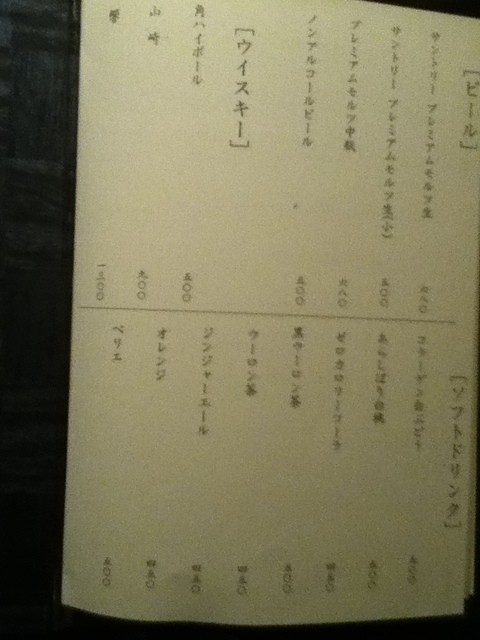 [ビール]
サントリー プレミアムモルツ生 六八〇
サントリー プレミアムモルツ生(小) 五〇〇
プレミアムモルツ中瓶 六八〇
ノンアルコールビール 五〇〇
[ウイスキー]
角ハイボール 五〇〇
山崎 九〇〇
響 一三〇〇
[ソフトドリンク]
五〇〇
あらしぼり白桃 五〇〇
ゼロカロリーコーラ 四五〇
黒ウーロン茶 五〇〇
ウーロン茶 四五〇
ジンジャーエール 四五〇
オレンジ 四五〇
ペリエ 五〇〇